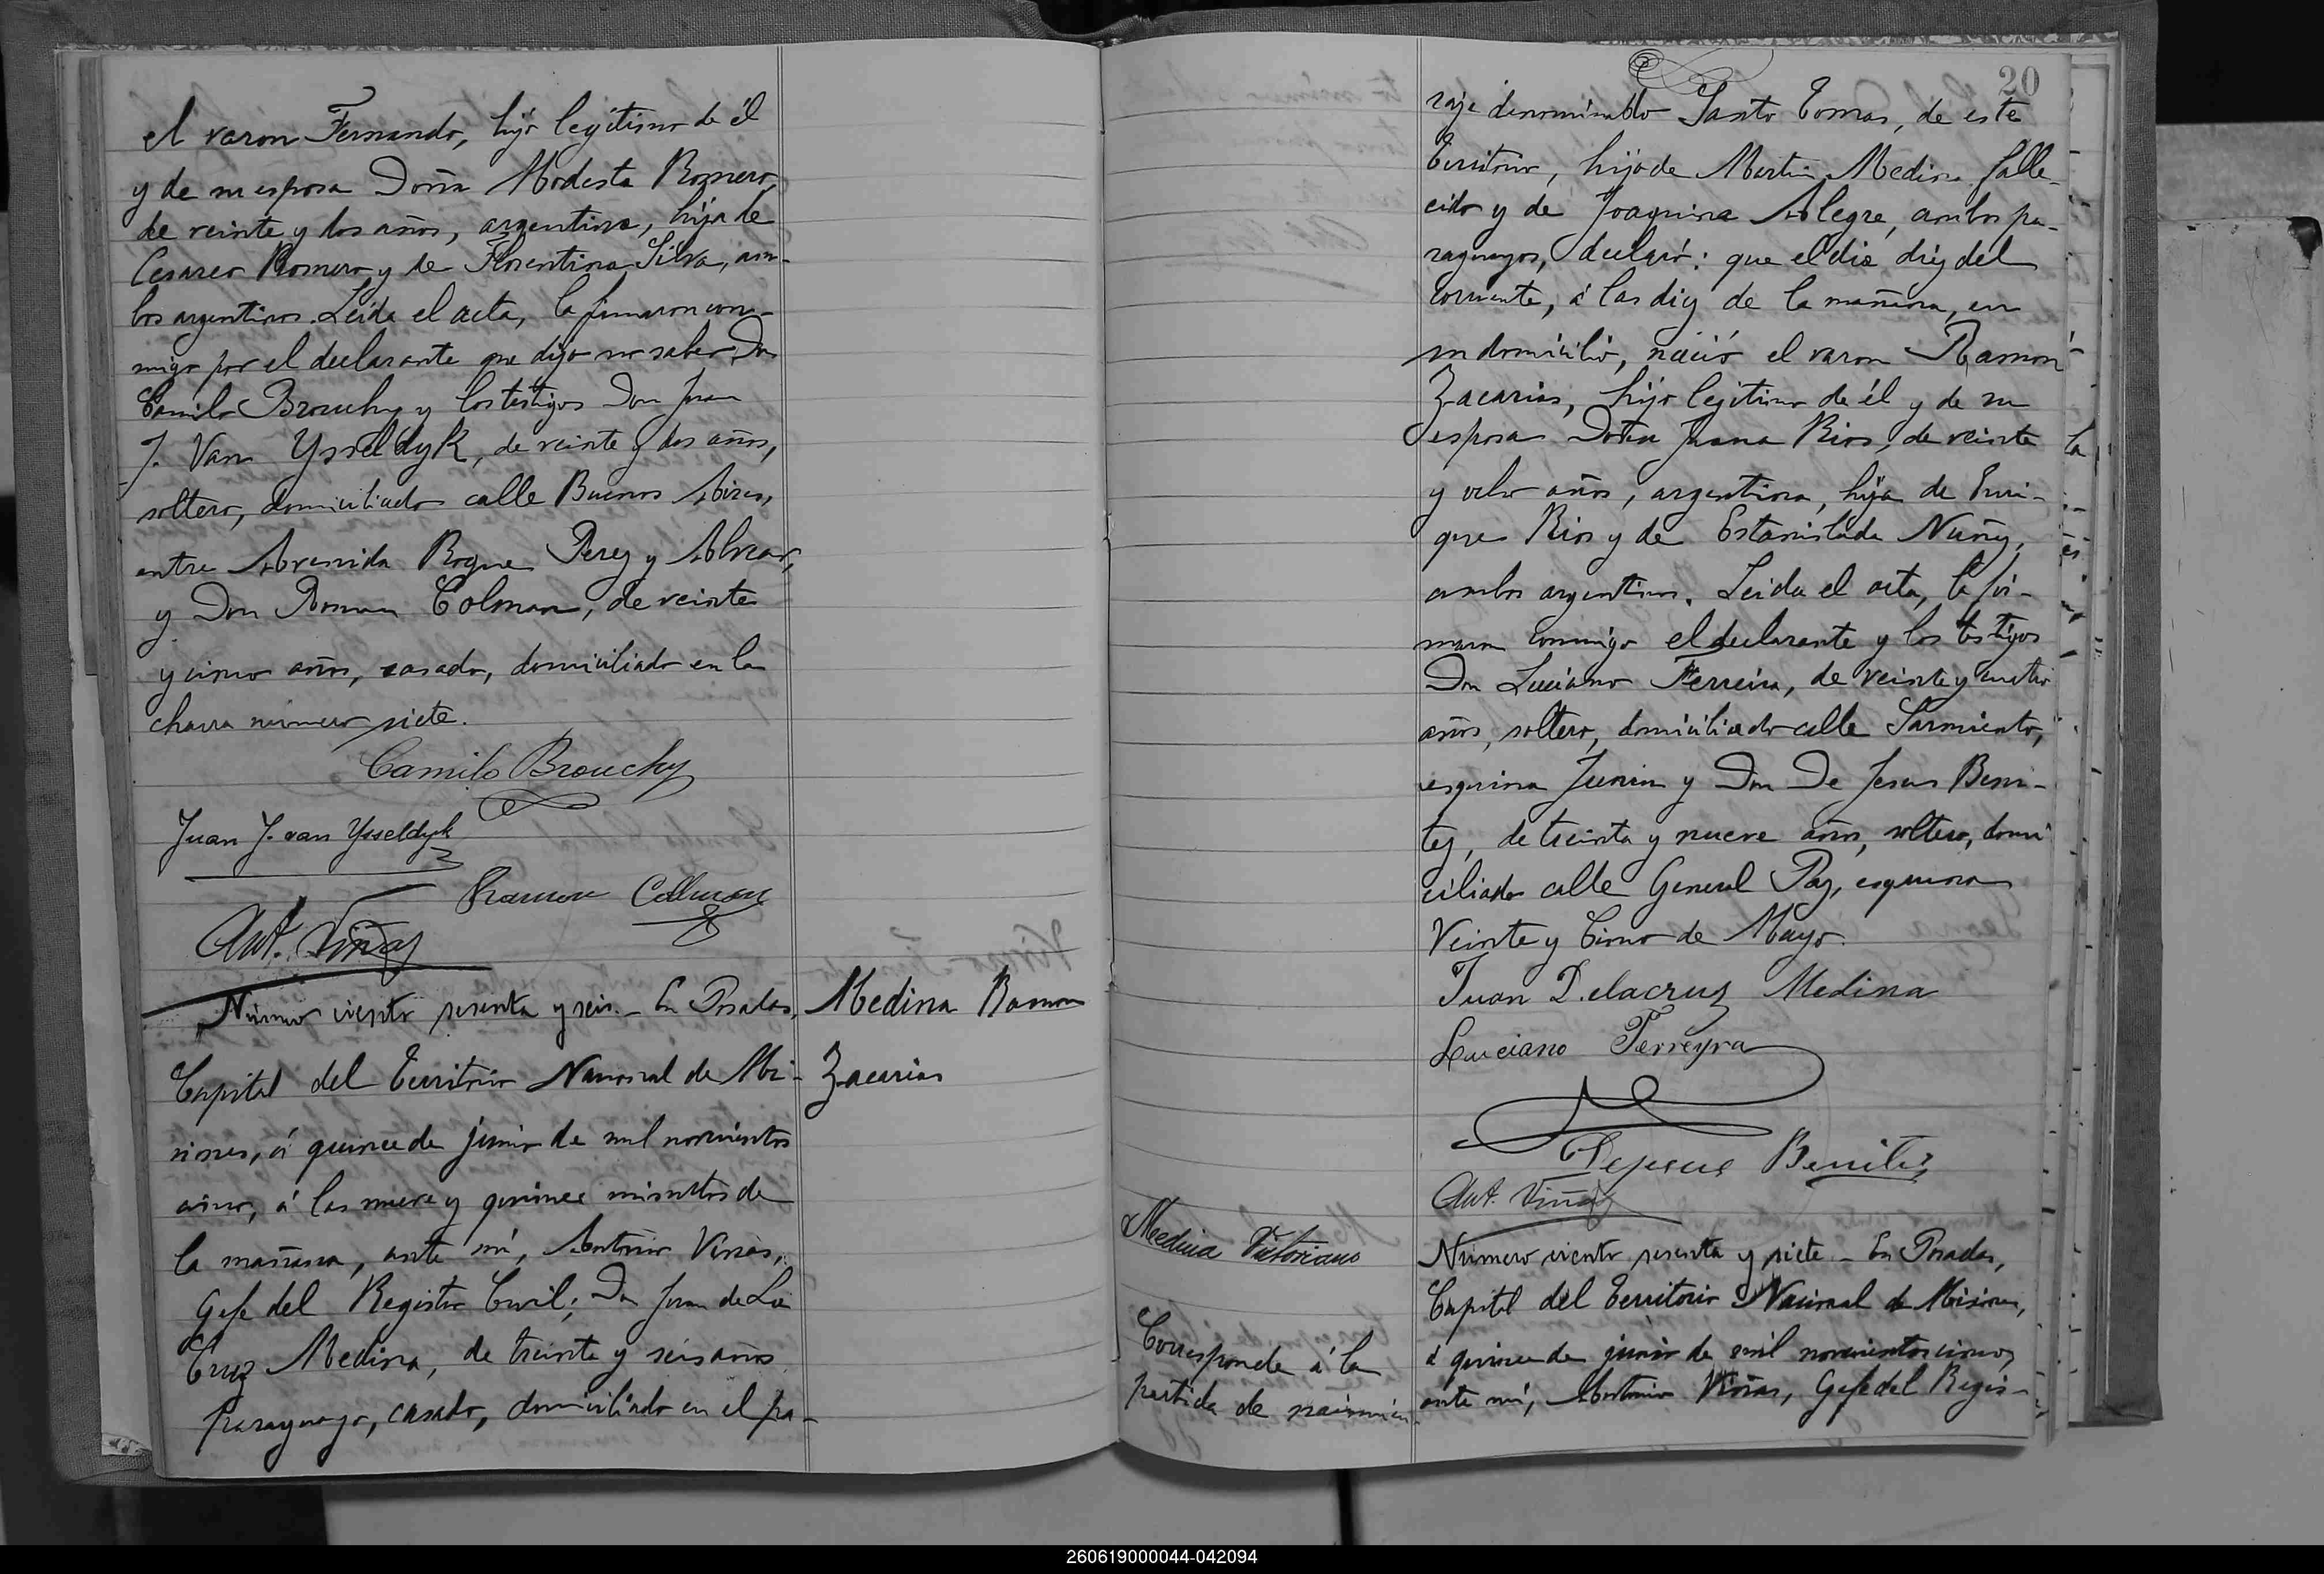 el varon Fernando, hijo legitimo de él
y de su esposa Doña Modesta Romero,
de veinte y dos años, argentina, hija de
Cesareo Romero y de Florentina Silva, am-
bos argentinos. Leida el acta, la firmaron con-
migo por el declarante que dijo no saber, Don
Camilo Brouchy y los testigos Don Juan
J. Van Ysseldyk, de veinte y dos años,
soltero, domiciliado calle Buenos Aires,
entre Avenida Roque Perez y Alvear,
y Don Roman Colman, de veinte
y cinco años, casado, domiciliado en la
chacra numero siete.
Camilo Brouchy
Juan J. van Ysseldyk
Ramon Collman
Ant. Viñas
Número ciento sesenta y seis. - En Posadas,
Capital del Territorio Nacional de Mi-
siones, á quince de junio de mil novecientos
cinco, á las nueve y quince minutos de
la mañana, ante mí, Antonio Viñas,
Gefe del Registro Civil; Don Juan de La
Cruz Medina, de treinta y seis años
paraguayo, casado, domiciliado en el pa-
Medina Ramon
Zacarias
20
raje denominado Santo Tomas, de este
Territorio, hijo de Martin Medina falle-
cido y de Joaquina Alegre, ambos pa-
raguayos, declaró: que el dia diez del
corriente, á las diez de la mañana, en
su domicilio, nació el varon Ramon
Zacarias, hijo legitimo de él y de su
esposa Doña Juana Rios, de veinte
y ocho años, argentina, hija de Enri-
que Rios y de Estanislada Nuñez,
ambos argentinos. Leida el acta, la fir-
maron conmigo el declarante y los testigos
Don Luciano Ferreira, de veinte y cuatro
años, soltero, domiciliado calle Sarmiento,
esquina Junin y Don De Jesus Beni-
tez, de treinta y nueve años, soltero, domi
ciliado calle General Paz, esquina
Veinte y Cinco de Mayo.
Juan Delacruz Medina
Luciano Ferreyra
Dejesus Benitez
Ant. Viñas
Medina Victoriano
Corresponde á la
partida de nacimien-
Número ciento sesenta y siete - En Posadas,
Capital del Territorio Nacional de Misiones,
á quince de junio de mil novecientos cinco,
ante mí, Antonio Viñas, Gefe del Regis-
260619000044-042094